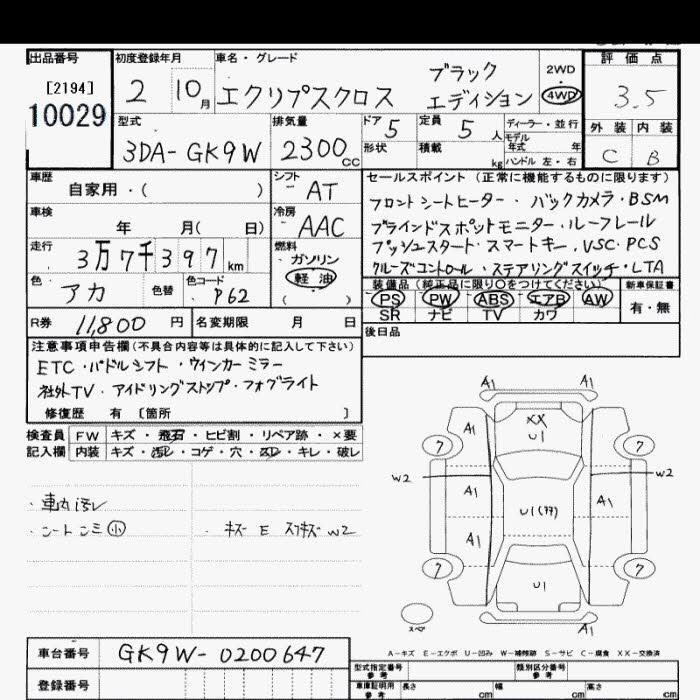 出品番号 初度登録年月 車名・グレード 評価点
[2194] 2 10月 エクリプスクロス ブラック エディション 2WD 4WD 3.5
10029
型式 排気量 ドア 5 定員 5 人 ディーラー・並行 外装 内装
モデル 年式 年
3DA-GK9W 2300cc 形状 積載 kg ハンドル 左・右 C B
車歴 シフト セールスポイント (正常に機能するものに限ります)
自家用・( ) AT フロントシートヒーター・バックカメラ・BSM
車検 冷房 ブラインドスポットモニター・ルーフレール
年 月( 日) AAC プッシュスタート・スマートキー・VSC・PCS
走行 燃料 クルーズコントロール・ステアリングスイッチ・LTA
3万7千397km ・ガソリン
色 色替 色コード ・軽油 装備品(純正品に限り〇をつけてください) 新車保証書
アカ P62 ( ) PS PW ABS エアB AW 有・無
SR ナビ TV カワ
R券 11,800 円 名変期限 月 日 後日品
注意事項申告欄(不具合内容等は具体的に記入して下さい)
ETC・パドルシフト・ウインカーミラー
社外TV・アイドリングストップ・フォグライト
修復歴 有 [箇所 ]
検査員 FW キズ・飛石・ヒビ割・リペア跡・×要
記入欄 内装 キズ・汚レ・コゲ・穴・スレ・キレ・破レ
・車内汚レ
・シートシミ小 ・キズ E スリキズ W2
A1 A1
A1 XX U1
7 7
W2 W2
A1 U1(タタ) A1
A1
7 U1 7
スペア A1
A-キズ E-エクボ U-凹み W-補修跡 S-サビ C-腐食 XX-交換済
車台番号 GK9W-0200647
型式指定番号 参考 類別区分番号 参考
登録番号 車庫証明用 参考 長さ cm 幅 cm 高さ cm